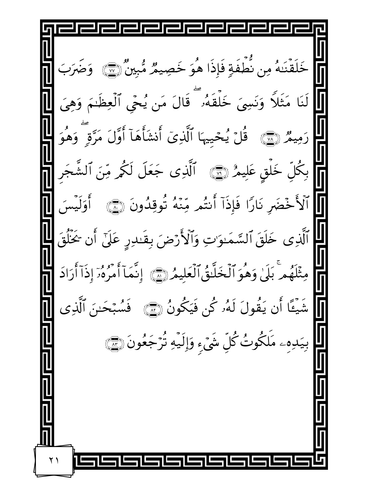 خَلَقْنَٰهُ مِن نُّطْفَةٍ فَإِذَا هُوَ خَصِيمٌ مُّبِينٌ ﴿٧٧﴾ وَضَرَبَ
لَنَا مَثَلًا وَنَسِىَ خَلْقَهُۥ ۖ قَالَ مَن يُحْىِ ٱلْعِظَٰمَ وَهِىَ
رَمِيمٌ ﴿٧٨﴾ قُلْ يُحْيِيهَا ٱلَّذِىٓ أَنشَأَهَآ أَوَّلَ مَرَّةٍ ۖ وَهُوَ
بِكُلِّ خَلْقٍ عَلِيمٌ ﴿٧٩﴾ ٱلَّذِى جَعَلَ لَكُم مِّنَ ٱلشَّجَرِ
ٱلْأَخْضَرِ نَارًا فَإِذَآ أَنتُم مِّنْهُ تُوقِدُونَ ﴿٨٠﴾ أَوَلَيْسَ
ٱلَّذِى خَلَقَ ٱلسَّمَٰوَٰتِ وَٱلْأَرْضَ بِقَٰدِرٍ عَلَىٰٓ أَن يَخْلُقَ
مِثْلَهُم ۚ بَلَىٰ وَهُوَ ٱلْخَلَّٰقُ ٱلْعَلِيمُ ﴿٨١﴾ إِنَّمَآ أَمْرُهُۥٓ إِذَآ أَرَادَ
شَيْـًٔا أَن يَقُولَ لَهُۥ كُن فَيَكُونُ ﴿٨٢﴾ فَسُبْحَٰنَ ٱلَّذِى
بِيَدِهِۦ مَلَكُوتُ كُلِّ شَىْءٍ وَإِلَيْهِ تُرْجَعُونَ ﴿٨٣﴾
٢١